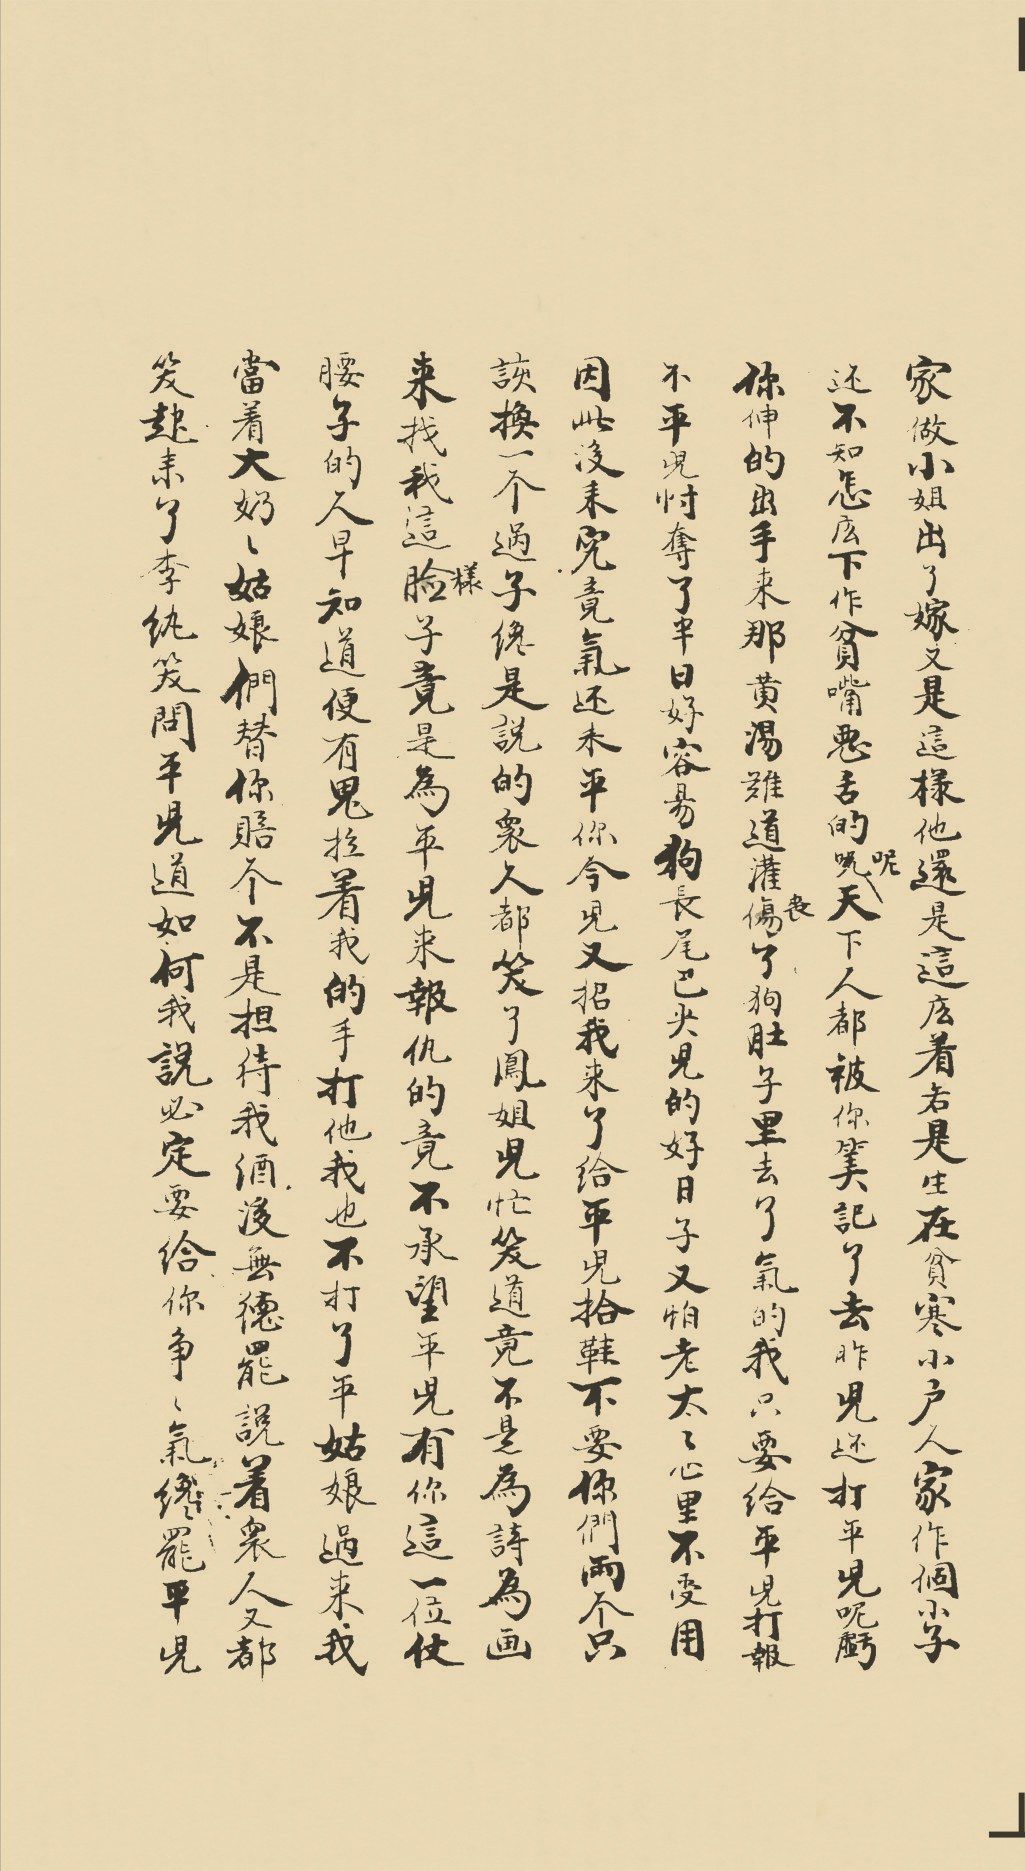 家做小姐出了嫁又是這樣他還是這庅着若是生在貧寒小户人家作個小子
还不知怎庅下作貧嘴惡舌的呢天下人都被你筭記了去昨児还打平児呢虧
你伸的出手来那黄湯難道灌喪了狗肚子里去了氣的我只要給平児打報
不平児忖奪了半日好容易狗長尾巴尖児的好日子又怕老太〻心里不受用
因此没来究竟氣还未平你今児又招我来了給平児拾鞋不要你們兩个只
該換一个過子纔是説的衆人都笑了鳳姐児忙笑道竟不是為詩為画
来找我這樣臉子竟是為平児来報仇的竟不承望平児有你這一位仗
腰子的人早知道便有鬼拉着我的手打他我也不打了平姑娘過来我
當着大奶〻姑娘們替你賠个不是担待我酒後無德罷説着衆人又都
笑起来了李紈笑問平児道如何我説必定要給你争〻氣纔罷平児